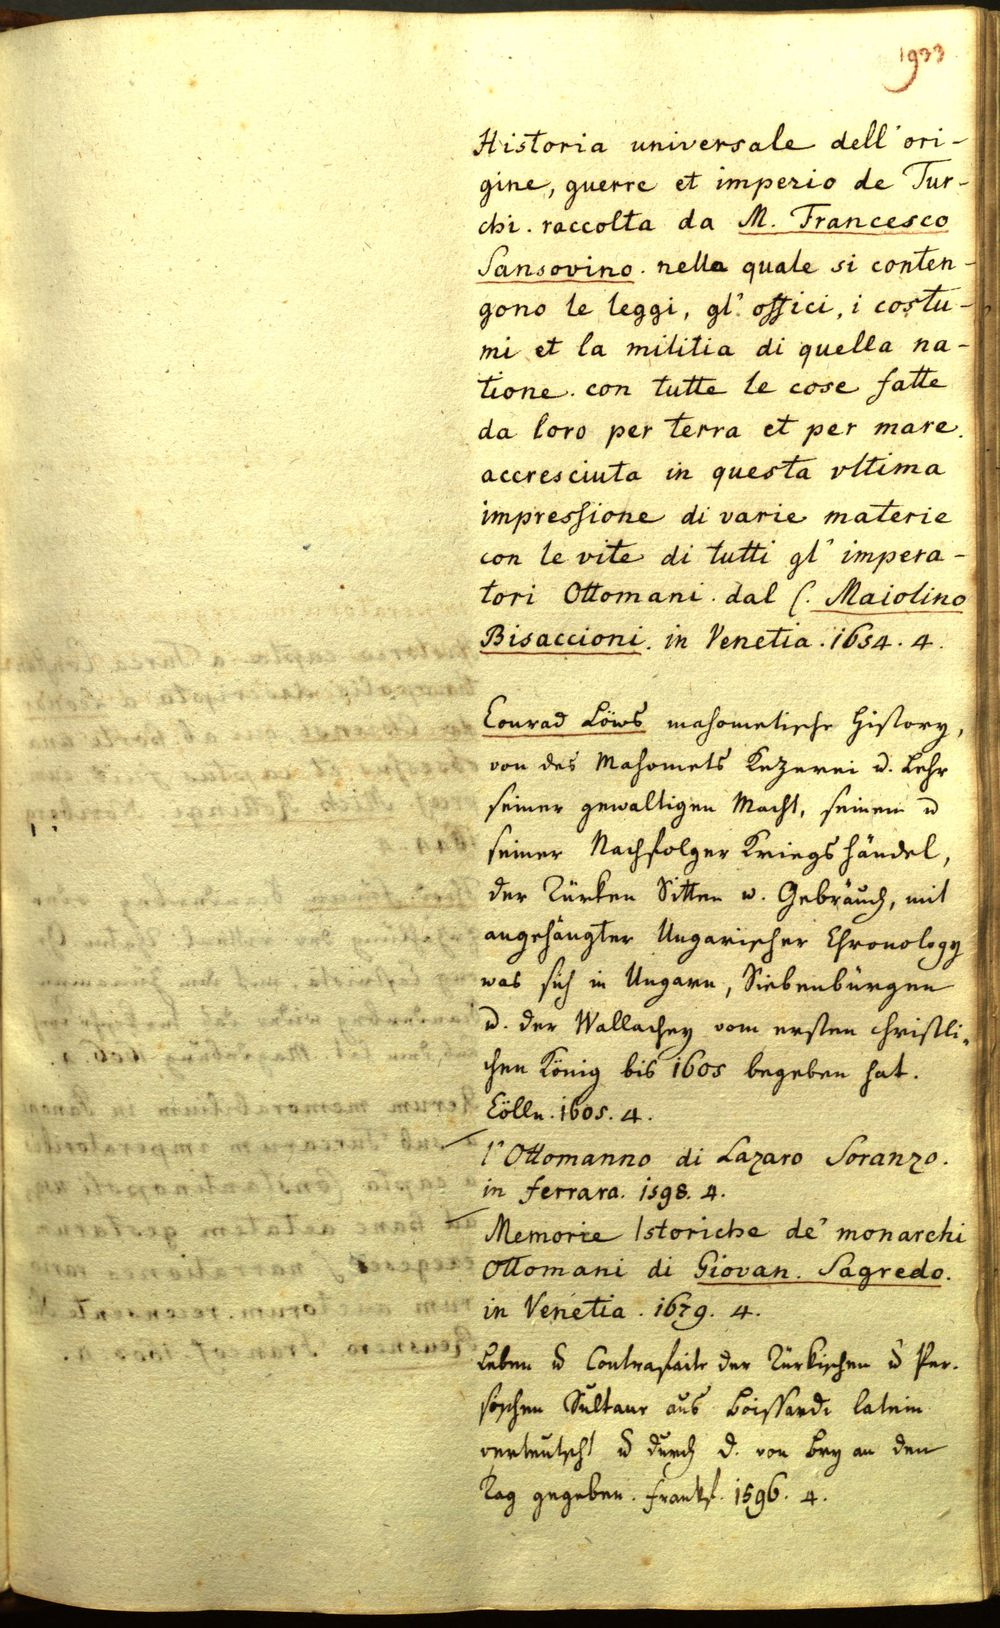 1933
Historia universale dell' ori-
gine, guerre et imperio de Tur-
chi. raccolta da M. Francesco
Sansovino. nella quale si conten-
gono le leggi, gl' offici, i costu-
mi et la militia di quella na-
tione. con tutte le cose fatte
da loro per terra et per mare.
accresciuta in questa vltima
impressione di varie materie
con le vite di tutti gl' impera-
tori Ottomani. dal C. Maiolino
Bisaccioni. in Venetia. 1654. 4.
Conrad Löws mahometische History,
von des Mahomets Kezerei u. Lehr
seiner gewaltigen Macht, seinem u
seiner Nachfolger Kriegshändel,
der Türken Sitten u. Gebräuch, mit
angehängter Ungarischer Chronology
was sich in Ungarn, Siebenbürgen
u. der Wallachey vom ersten christli-
chen König bis 1605 begeben hat.
Cölln. 1605. 4.
l'Ottomanno di Lazaro Soranzo.
in ferrara. 1598. 4.
Memorie Istoriche de' monarchi
Ottomani di Giovan. Sagredo.
in Venetia. 1679. 4.
Leben u Contrafaite der Türkischen u Per-
sischen Sultane aus Boissardi latein
verteutscht u durch D. von Bry an den
Tag gegeben. Frankf. 1596. 4.